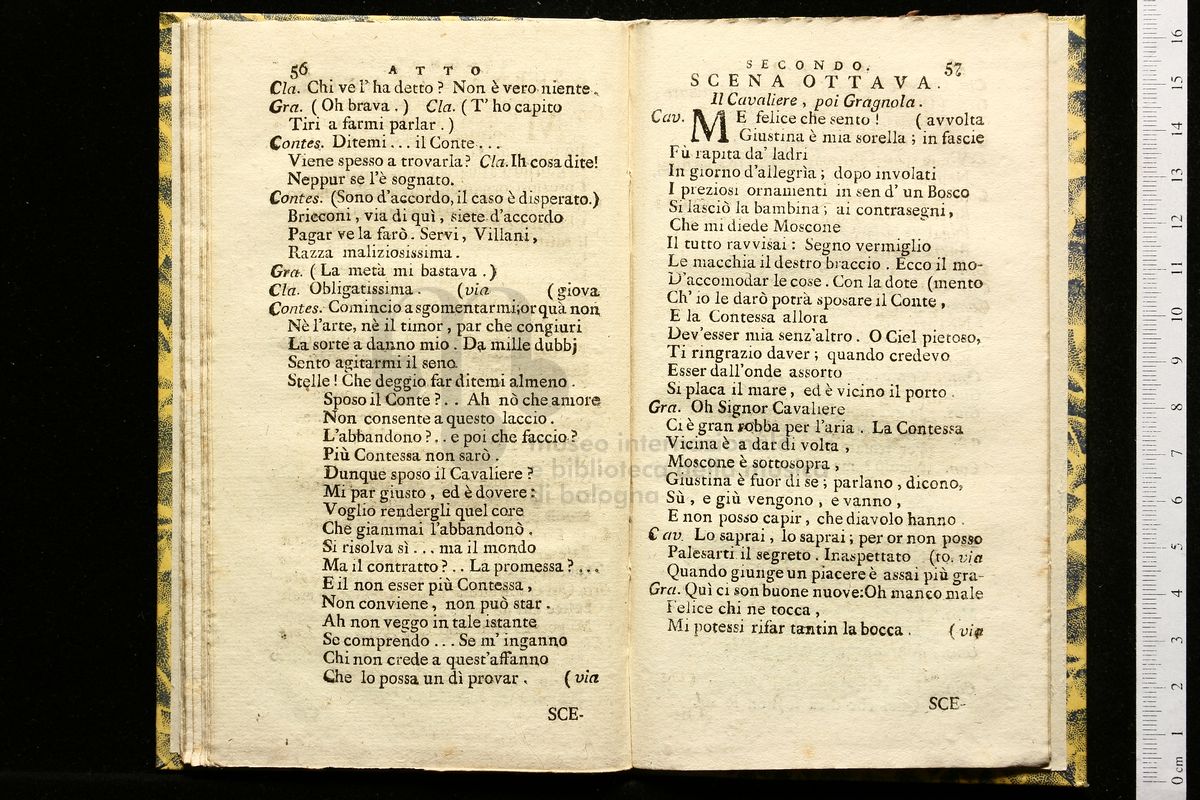 56 ATTO
Cla. Chi ve l'ha detto? Non è vero niente.
Gra. (Oh brava.) Cla. (T'ho capito
Tiri a farmi parlar.)
Contes. Ditemi... il Conte...
Viene spesso a trovarla? Cla. Ih cosa dite!
Neppur se l'è sognato.
Contes. (Sono d'accordo, il caso è disperato.)
Brieconi, via di quì, siete d'accordo
Pagar ve la farò. Servi, Villani,
Razza maliziosissima.
Gra. (La metà mi bastava.)
Cla. Obligatissima. (via (giova
Contes. Comincio a sgomentarmi; or quà non
Nè l'arte, nè il timor, par che congiuri
La sorte a danno mio. Da mille dubbj
Sento agitarmi il seno
Stelle! Che deggio far ditemi almeno.
Sposo il Conte?.. Ah nò che amore
Non consente a questo laccio.
L'abbandono?.. e poi che faccio?
Più Contessa non sarò.
Dunque sposo il Cavaliere?
Mi par giusto, ed è dovere:
Voglio rendergli quel core
Che giammai l'abbandonò.
Si risolva sì... ma il mondo
Ma il contratto?.. La promessa?...
E il non esser più Contessa,
Non conviene, non può star.
Ah non veggo in tale istante
Se comprendo... Se m'inganno
Chi non crede a quest'affanno
Che lo possa un dì provar. (via
SCE-
SECONDO. 57
SCENA OTTAVA.
Il Cavaliere, poi Gragnola.
Cav. ME felice che sento! (avvolta
Giustina è mia sorella; in fascie
Fù rapita da' ladri
In giorno d'allegrìa; dopo involati
I preziosi ornamenti in sen d'un Bosco
Si lasciò la bambina; ai contrasegni,
Che mi diede Moscone
Il tutto ravvisai: Segno vermiglio
Le macchia il destro braccio. Ecco il mo-
D'accomodar le cose. Con la dote (mento
Ch'io le darò potrà sposare il Conte,
E la Contessa allora
Dev'esser mia senz'altro. O Ciel pietoso,
Ti ringrazio daver; quando credevo
Esser dall'onde assorto
Si placa il mare, ed è vicino il porto.
Gra. Oh Signor Cavaliere
Ci è gran robba per l'aria. La Contessa
Vicina è a dar di volta,
Moscone è sottosopra,
Giustina è fuor di se; parlano, dicono,
Sù, e giù vengono, e vanno,
E non posso capir, che diavolo hanno.
Cav. Lo saprai, lo saprai; per or non posso
Palesarti il segreto. Inaspettato (to. via
Quando giunge un piacere è assai più gra-
Gra. Quì ci son buone nuove: Oh manco male
Felice chi ne tocca,
Mi potessi rifar tantin la bocca. (via
SCE-
museo
e biblioteca
di bologna
16
15
14
13
12
11
10
9
8
7
6
5
4
3
2
1
0 cm